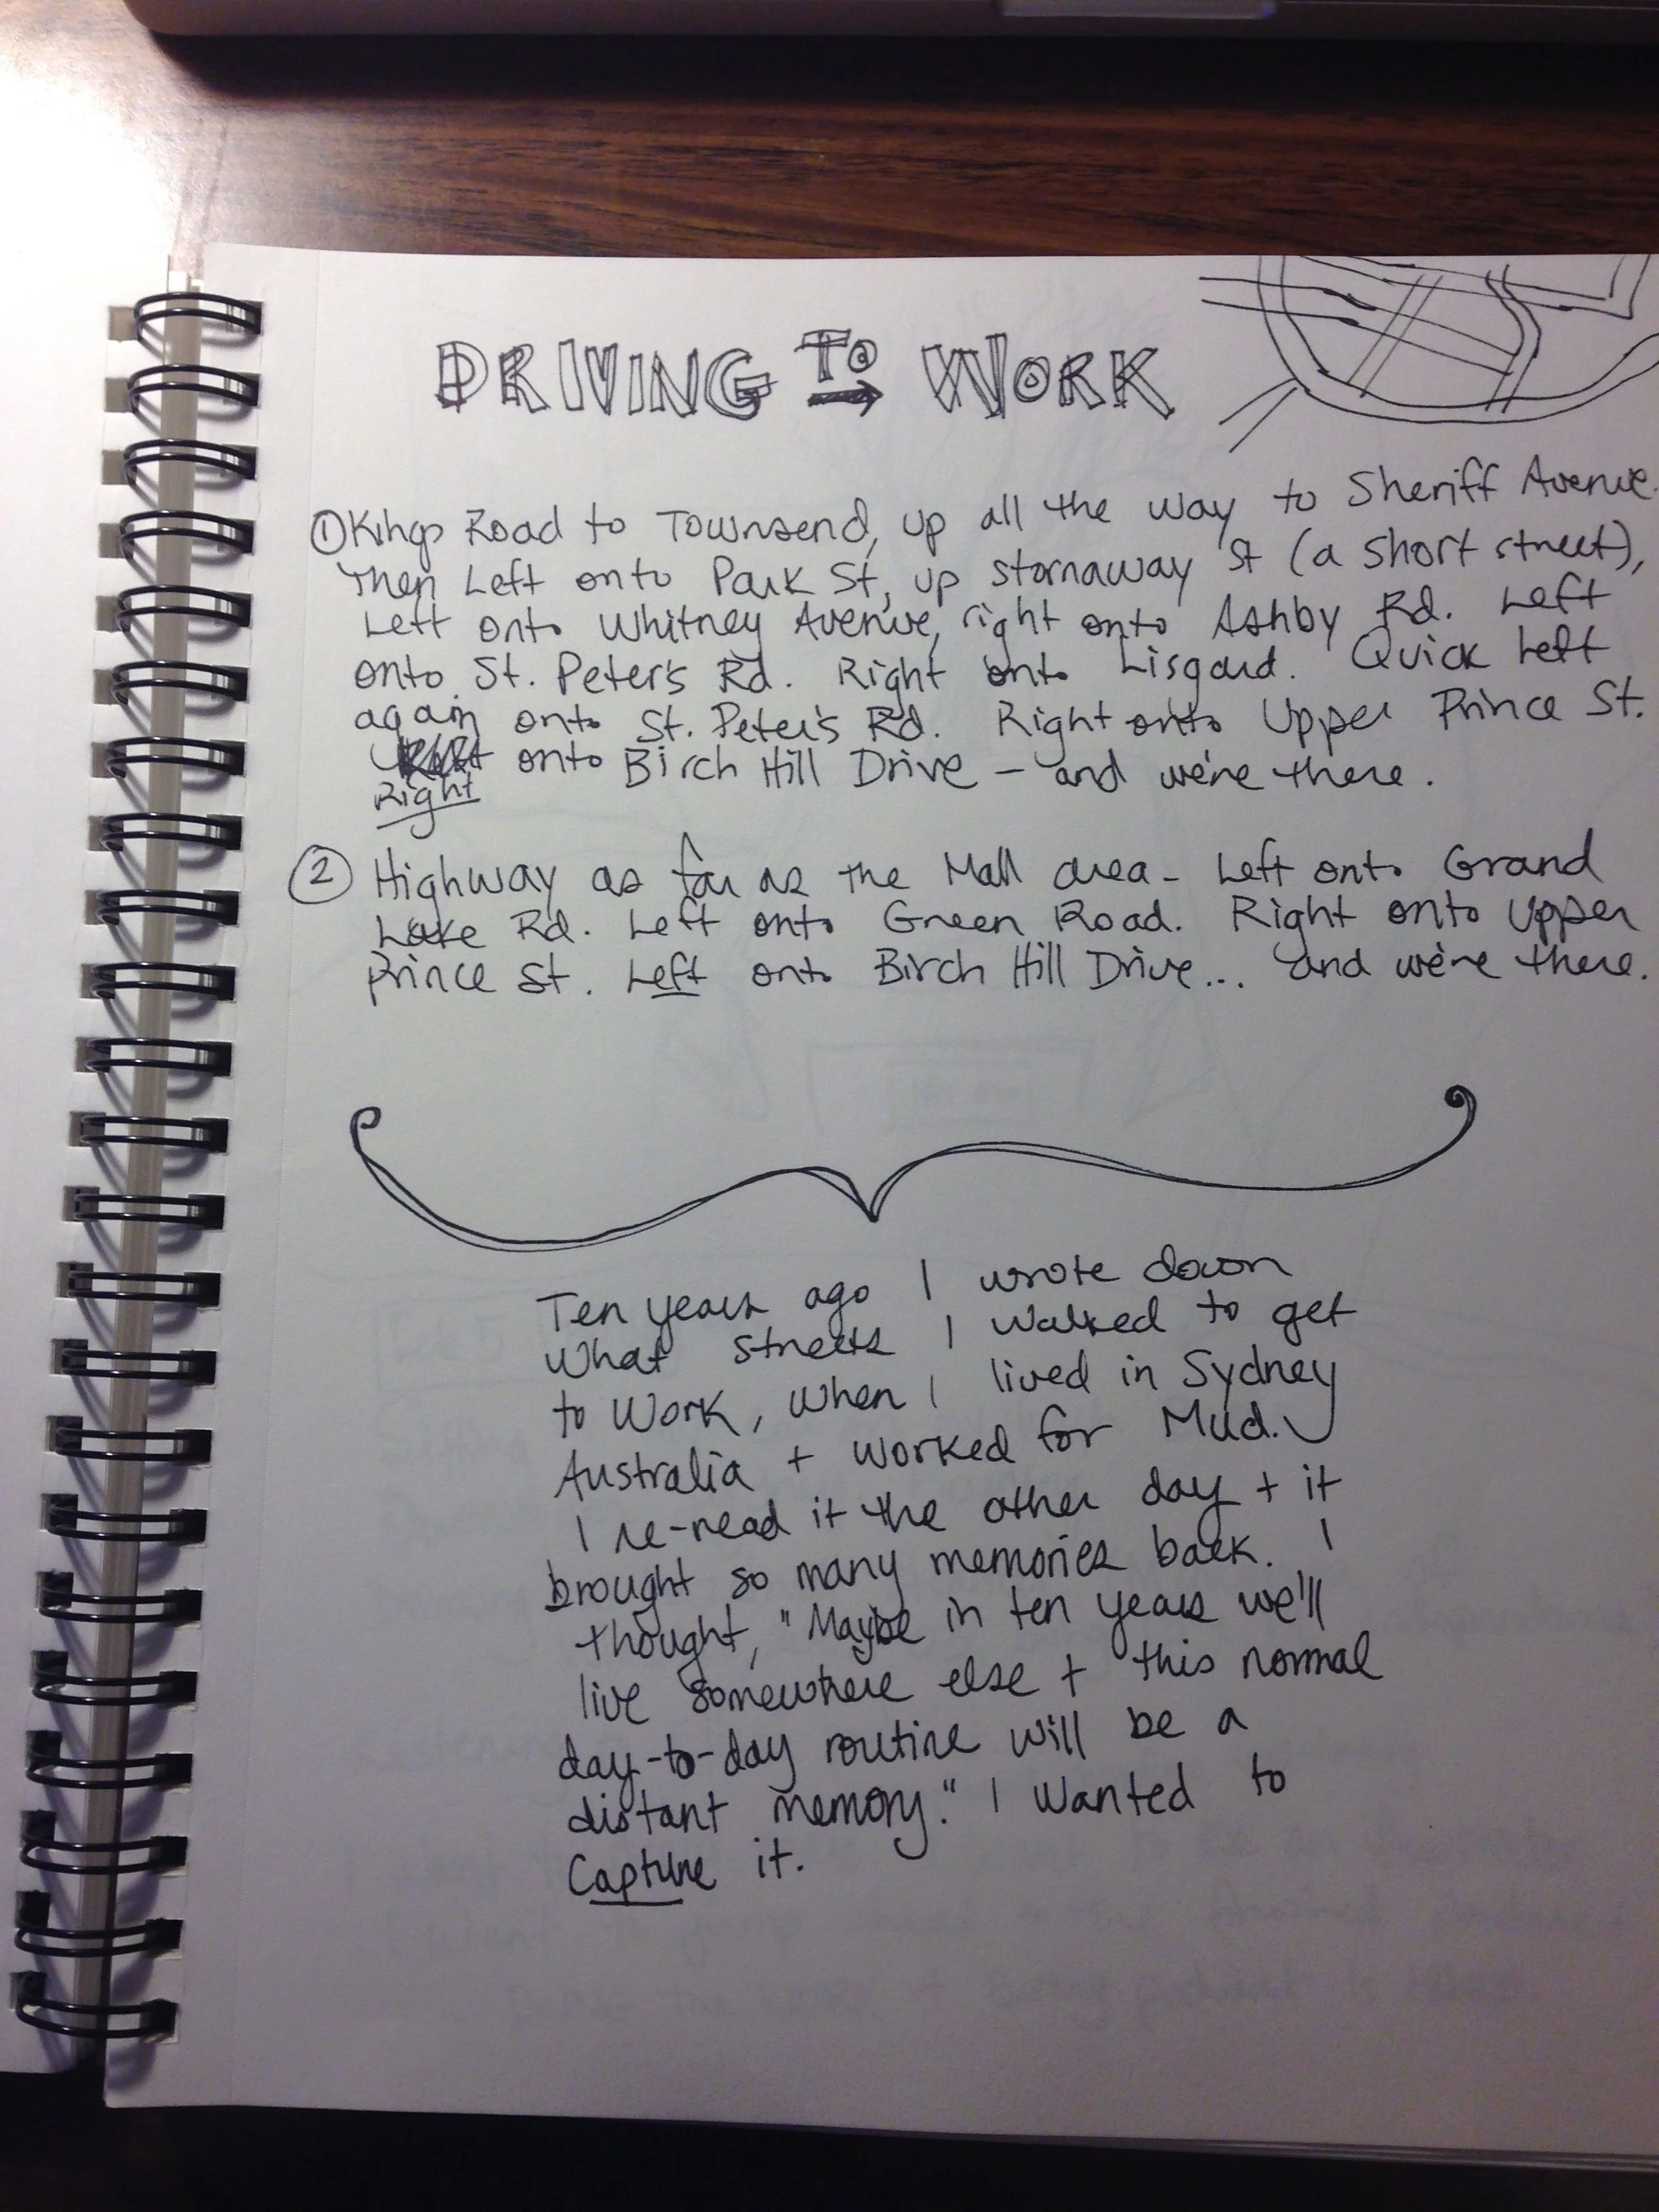 DRIVING TO WORK
① Kings Road to Townsend, up all the way to Sheriff Avenue.
Then Left onto Park St, up Stornaway St (a short street),
Left onto Whitney Avenue, right onto Ashby Rd. Left
onto St. Peter's Rd. Right onto Lisgard. Quick Left
again onto St. Peter's Rd. Right onto Upper Prince St.
onto Birch Hill Drive — and we're there.
Right
② Highway as far as the Mall area - Left onto Grand
Lake Rd. Left onto Green Road. Right onto Upper
Prince St. Left onto Birch Hill Drive... and we're there.
Ten years ago I wrote down
what streets I walked to get
to work, when I lived in Sydney
Australia + worked for Mud.
I re-read it the other day + it
brought so many memories back. I
thought, "Maybe in ten years we'll
live somewhere else + this normal
day-to-day routine will be a
distant memory." I wanted to
Capture it.